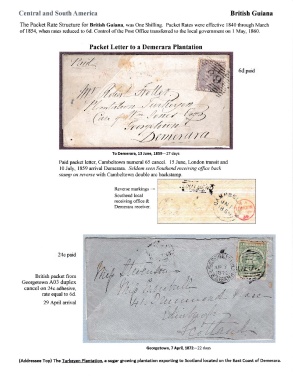 Central and South America
British Guiana
The Packet Rate Structure for British Guiana, was One Shilling. Packet Rates were effective 1840 through March
of 1854, when rates reduced to 6d. Control of the Post Office transferred to the local government on 1 May, 1860.
Packet Letter to a Demerara Plantation
6d paid
Paid
Demerara
To Demerara, 15 June, 1859—27 days
Paid packet letter, Cambeltown numeral 65 cancel. 15 June, London transit and
10 July, 1859 arrival Demerara. Seldom seen Southend receiving office back
stamp on reverse with Cambeltown double arc backstamp
Reverse markings →
Southend local
receiving office &
Demerara receiver.
24c paid
British packet from
Georgetown A03 duplex
cancel on 24c adhesive,
rate equal to 6d.
29 April arrival
Miss
Scotland
Georgetown, 7 April, 1872—22 days
(Addressee Top) The Turkeyen Plantation, a sugar growing plantation exporting to Scotland located on the East Coast of Demerara.